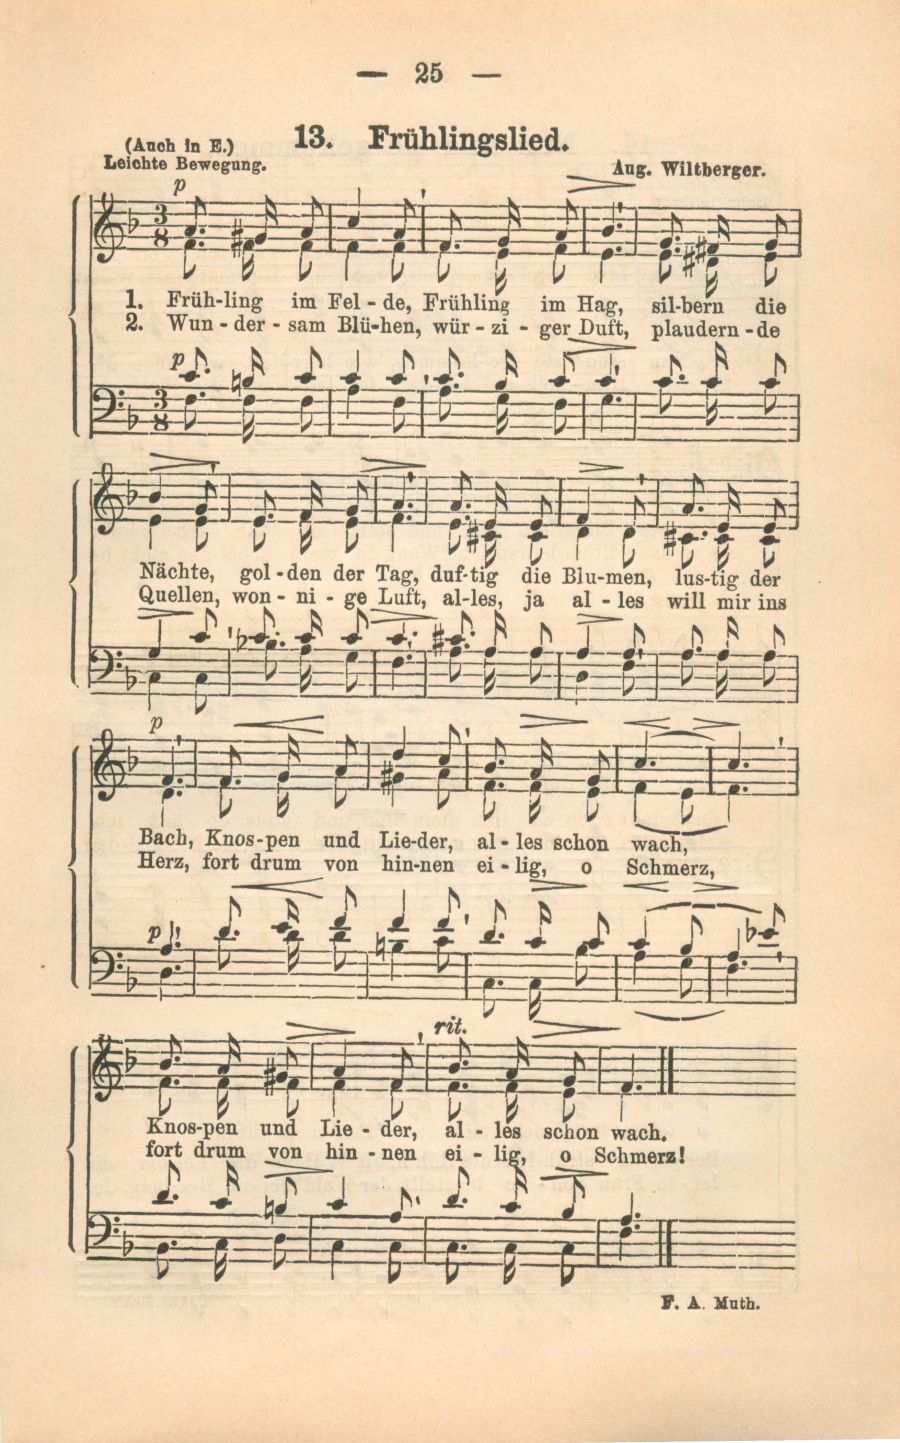 — 25 —
13. Frühlingslied.
(Auch in E.)
Leichte Bewegung.
Aug. Wiltberger.
p
1. Früh-ling im Fel - de, Frühling im Hag, sil-bern die
2. Wun - der - sam Blü-hen, wür - zi - ger Duft, plaudern - de
p
Nächte, gol - den der Tag, duf-tig die Blu-men, lus-tig der
Quellen, won - ni - ge Luft, al-les, ja al - les will mir ins
p
Bach, Knos-pen und Lie-der, al - les schon wach,
Herz, fort drum von hin-nen ei - lig, o Schmerz,
p
rit.
Knos-pen und Lie - der, al - les schon wach.
fort drum von hin - nen ei - lig, o Schmerz!
F. A. Muth.